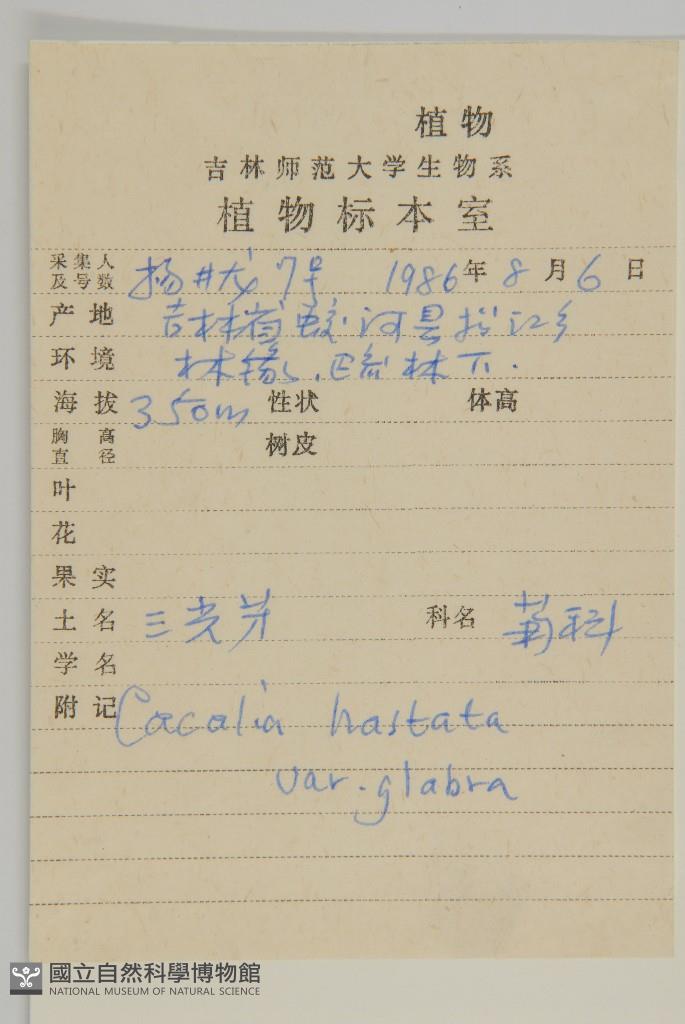 植物
吉林师范大学生物系
植物标本室
采集人及号数 杨 7号 1986年8月6日
产地 吉林省蛟河县 江乡
环境 林缘、 林下.
海拔 350m 性状 体高
胸高直径 树皮
叶
花
果实
土名 三 芽 科名 菊科
学名
附记 Cacalia hastata
var. glabra
國立自然科學博物館
NATIONAL MUSEUM OF NATURAL SCIENCE